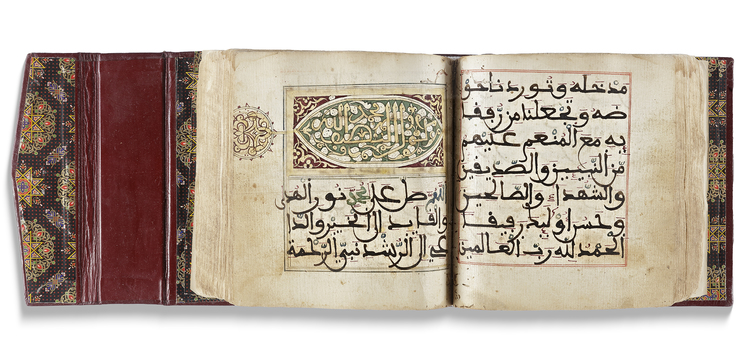 مدخله وتوردنا حو
ضه وتجعلنا من رفقا
يه مع المنعم عليهم
من النبيين والصديقين
والشهداء والصالحين
وحسن أوليك رفيقا
الحمد لله رب العالمين
اللهم صل على محمد نور الهدى
والقايد إلى الخير والدا
عي إلى الرشد نبي الرحمة